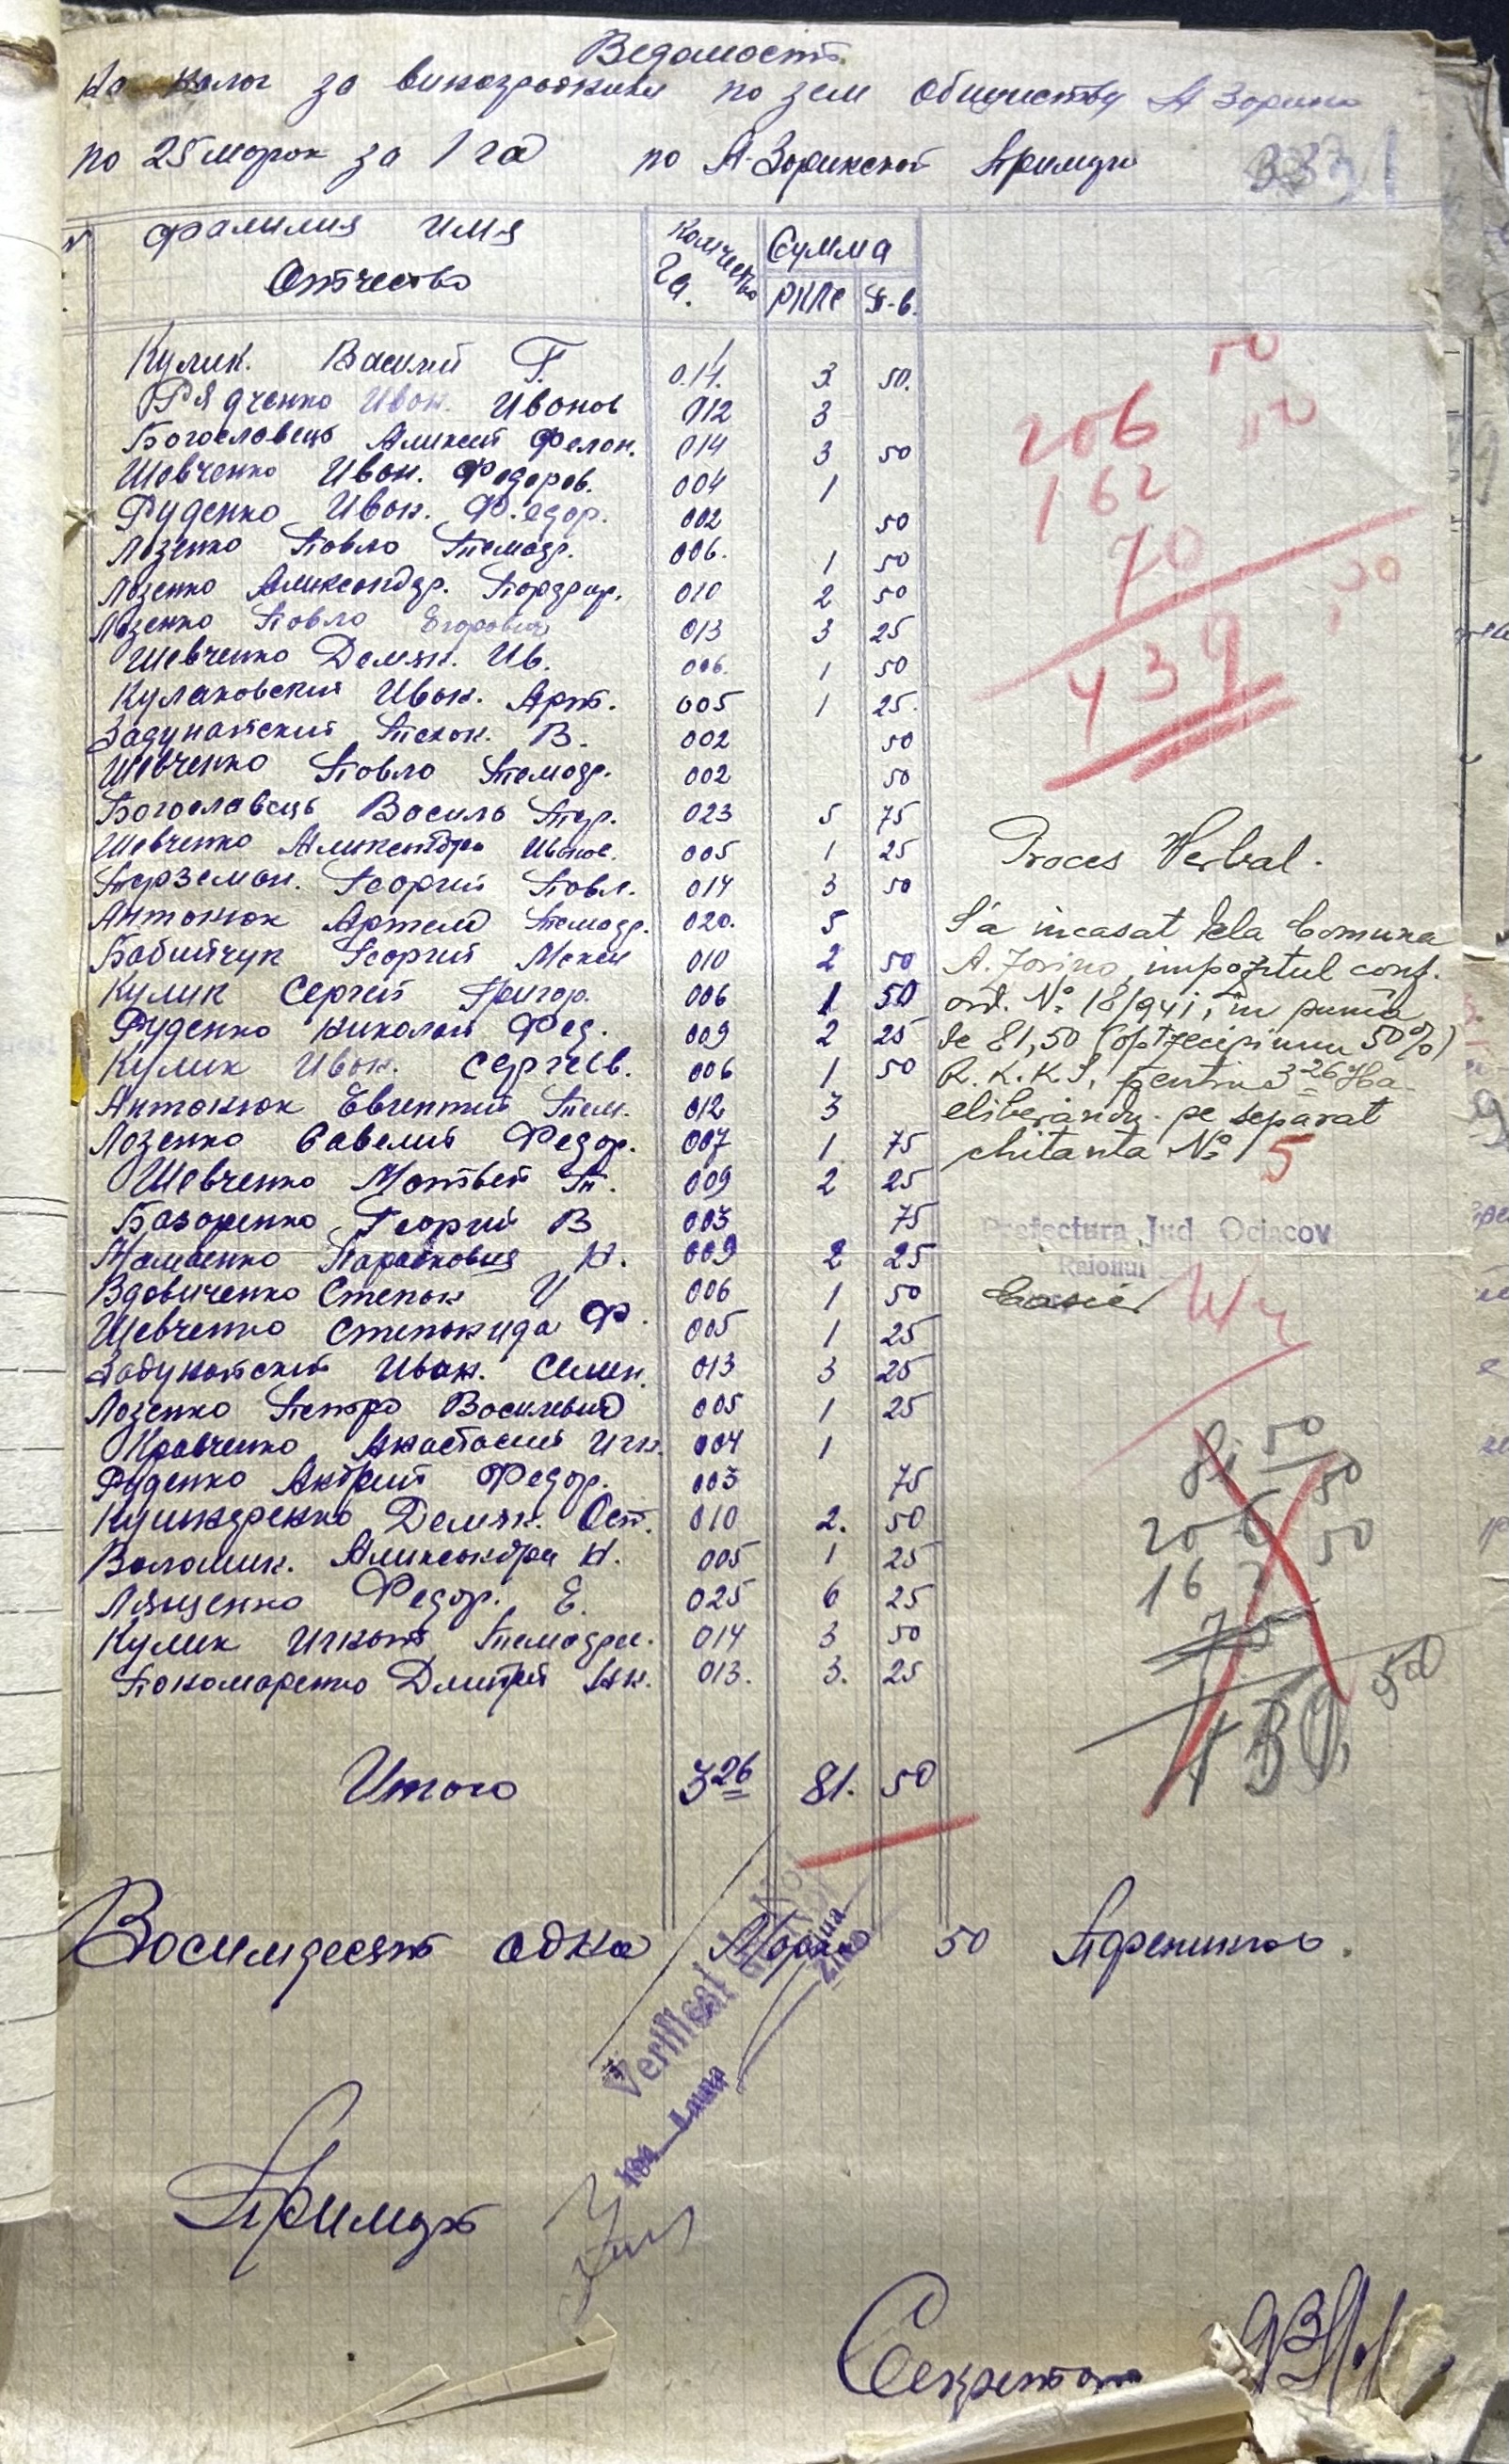 Ведомость
На налог за виноградники по зем обществу А Зорино
по 25 марок за 1 га по А-Зоринской Примэрии
№ Фамилия Имя Отчество Количество Га. Сумма РККС Пф-в.
Кулик. Василий Г. 0.14. 3. 50.
Рядченко Иван. Иванов 012 3
Богославець Аликсей Филон. 014 3 50
Шевченко Иван. Федоров. 004 1
Руденко Иван. Федор. 002 50
Лозенко Павло Тимофф. 006. 1 50
Лозенко Аликсандр. 010 2 50
Лозенко Павло Егорович 013 3 25
Шевченко Демян. Ив. 006. 1 50
Кулаковский Иван. Арт. 005 1 25.
Задунайский Тихон. В. 002 50
Шевченко Павло 002 50
Богославець Василь 023 5 75
Шевченко Аликсандра Иванов. 005 1 25
Терземан. Георгий Павл. 014 3 50
Антонюк Артем 020. 5
Бабийчук Георгий 010 2 50
Кулик Сергей Григор. 006 1 50
Руденко Николай Фед. 009 2 25
Кулик Иван. Сергеев. 006 1 50
Антонюк Евгений Тим. 012 3
Лозенко Савелий Федор. 007 1 75
Шевченко Матвей Т. 009 2 25
Базоренко Георгий В 003 75
Парасковия Н. 009 2 25
Вдовиченко Степан И 006 1 50
Шевченко Степанида Ф. 005 1 25
Задунайский Иван. Семен. 013 3 25
Лозенко Петро Василевич 005 1 25
Кравченко Анастасия Игн. 004 1
Руденко Андрей Федор. 003 75
Кушнеренко Демян. Ост. 010 2. 50
Воломик. Аликсандра Н. 005 1 25
Лященко Федор. Е. 025 6 25
Кулик Игнат 014 3 50
Пономаренко Дмитрий Ан. 013. 3. 25
Итого 3 26 81. 50
50
206 50
162
70
439
Proces Verbal.
S'a incasat dela Comuna
A. Zorino, impozitul conf.
ord. No 18/941, in suma
de 81,50 (optzecisiunu 50%)
R.K.K.S. pentru 3 26 Ha
eliberându-se separat
chitanta No 5
Prefectura Jud. Ociacov
Raionul
Casier
81 50
206 50
162 50
75
439, 50
Восимдесят одна Марка 50 Пфенингов.
Verificat
194 Luna
Ziua
Примарь
Секретарь